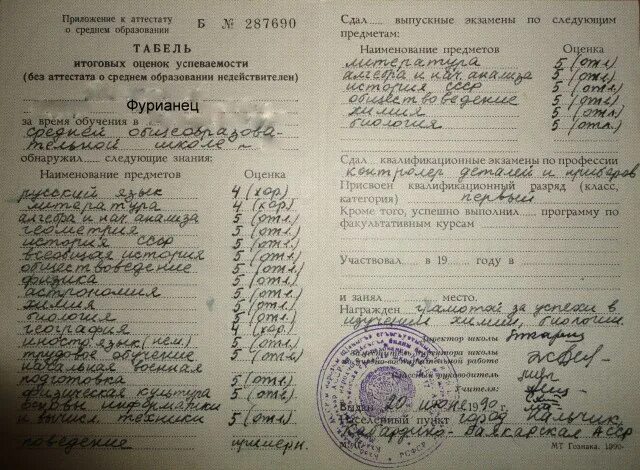 Приложение к аттестату
о среднем образовании
Б № 287690
ТАБЕЛЬ
итоговых оценок успеваемости
(без аттестата о среднем образовании недействителен)
Фурианец
за время обучения в
средней общеобразова-
тельной школе
обнаружил ..... следующие знания:
Наименование предметов Оценка
русский язык 4 (хор)
литература 4 (хор.)
алгебра и нач. анализа 5 (отл.)
геометрия 5 (отл.)
история СССР 5 (отл.)
всеобщая история 5 (отл.)
обществоведение 5 (отл.)
физика 5 (отл.)
астрономия 5 (отл.)
химия 5 (отл.)
биология 5 (отл.)
география 4 (хор.)
иностр. язык (нем.) 5 (отл.)
трудовое обучение 5 (отл.)
начальная военная
подготовка 5 (отл.)
физическая культура 5 (отл.)
основы информатики
и вычисл. техники 5 (отл.)
поведение примерн.
Сдал ..... выпускные экзамены по следующим
предметам:
Наименование предметов Оценка
литература 5 (отл.)
алгебра и нач. анализа 5 (отл.)
история СССР 5 (отл.)
обществоведение 5 (отл.)
химия 5 (отл.)
биология 5 (отл.)
Сдал ... квалификационные экзамены по профессии
контролер деталей и приборов
Присвоен квалификационный разряд (класс,
категория) первый
Кроме того, успешно выполнил ..... программу по
факультативным курсам
Участвовал ..... в 19 ..... году в
и занял ..... место.
Награжден грамотой за успехи в
изучении химии, биологии.
Директор школы
директора школы
работе
руководитель
Учителя:
Выдан 20 июня 1990
Населенный пункт город Нальчик,
Кабардино-Балкарская АССР
МТ Гознака. 1990.